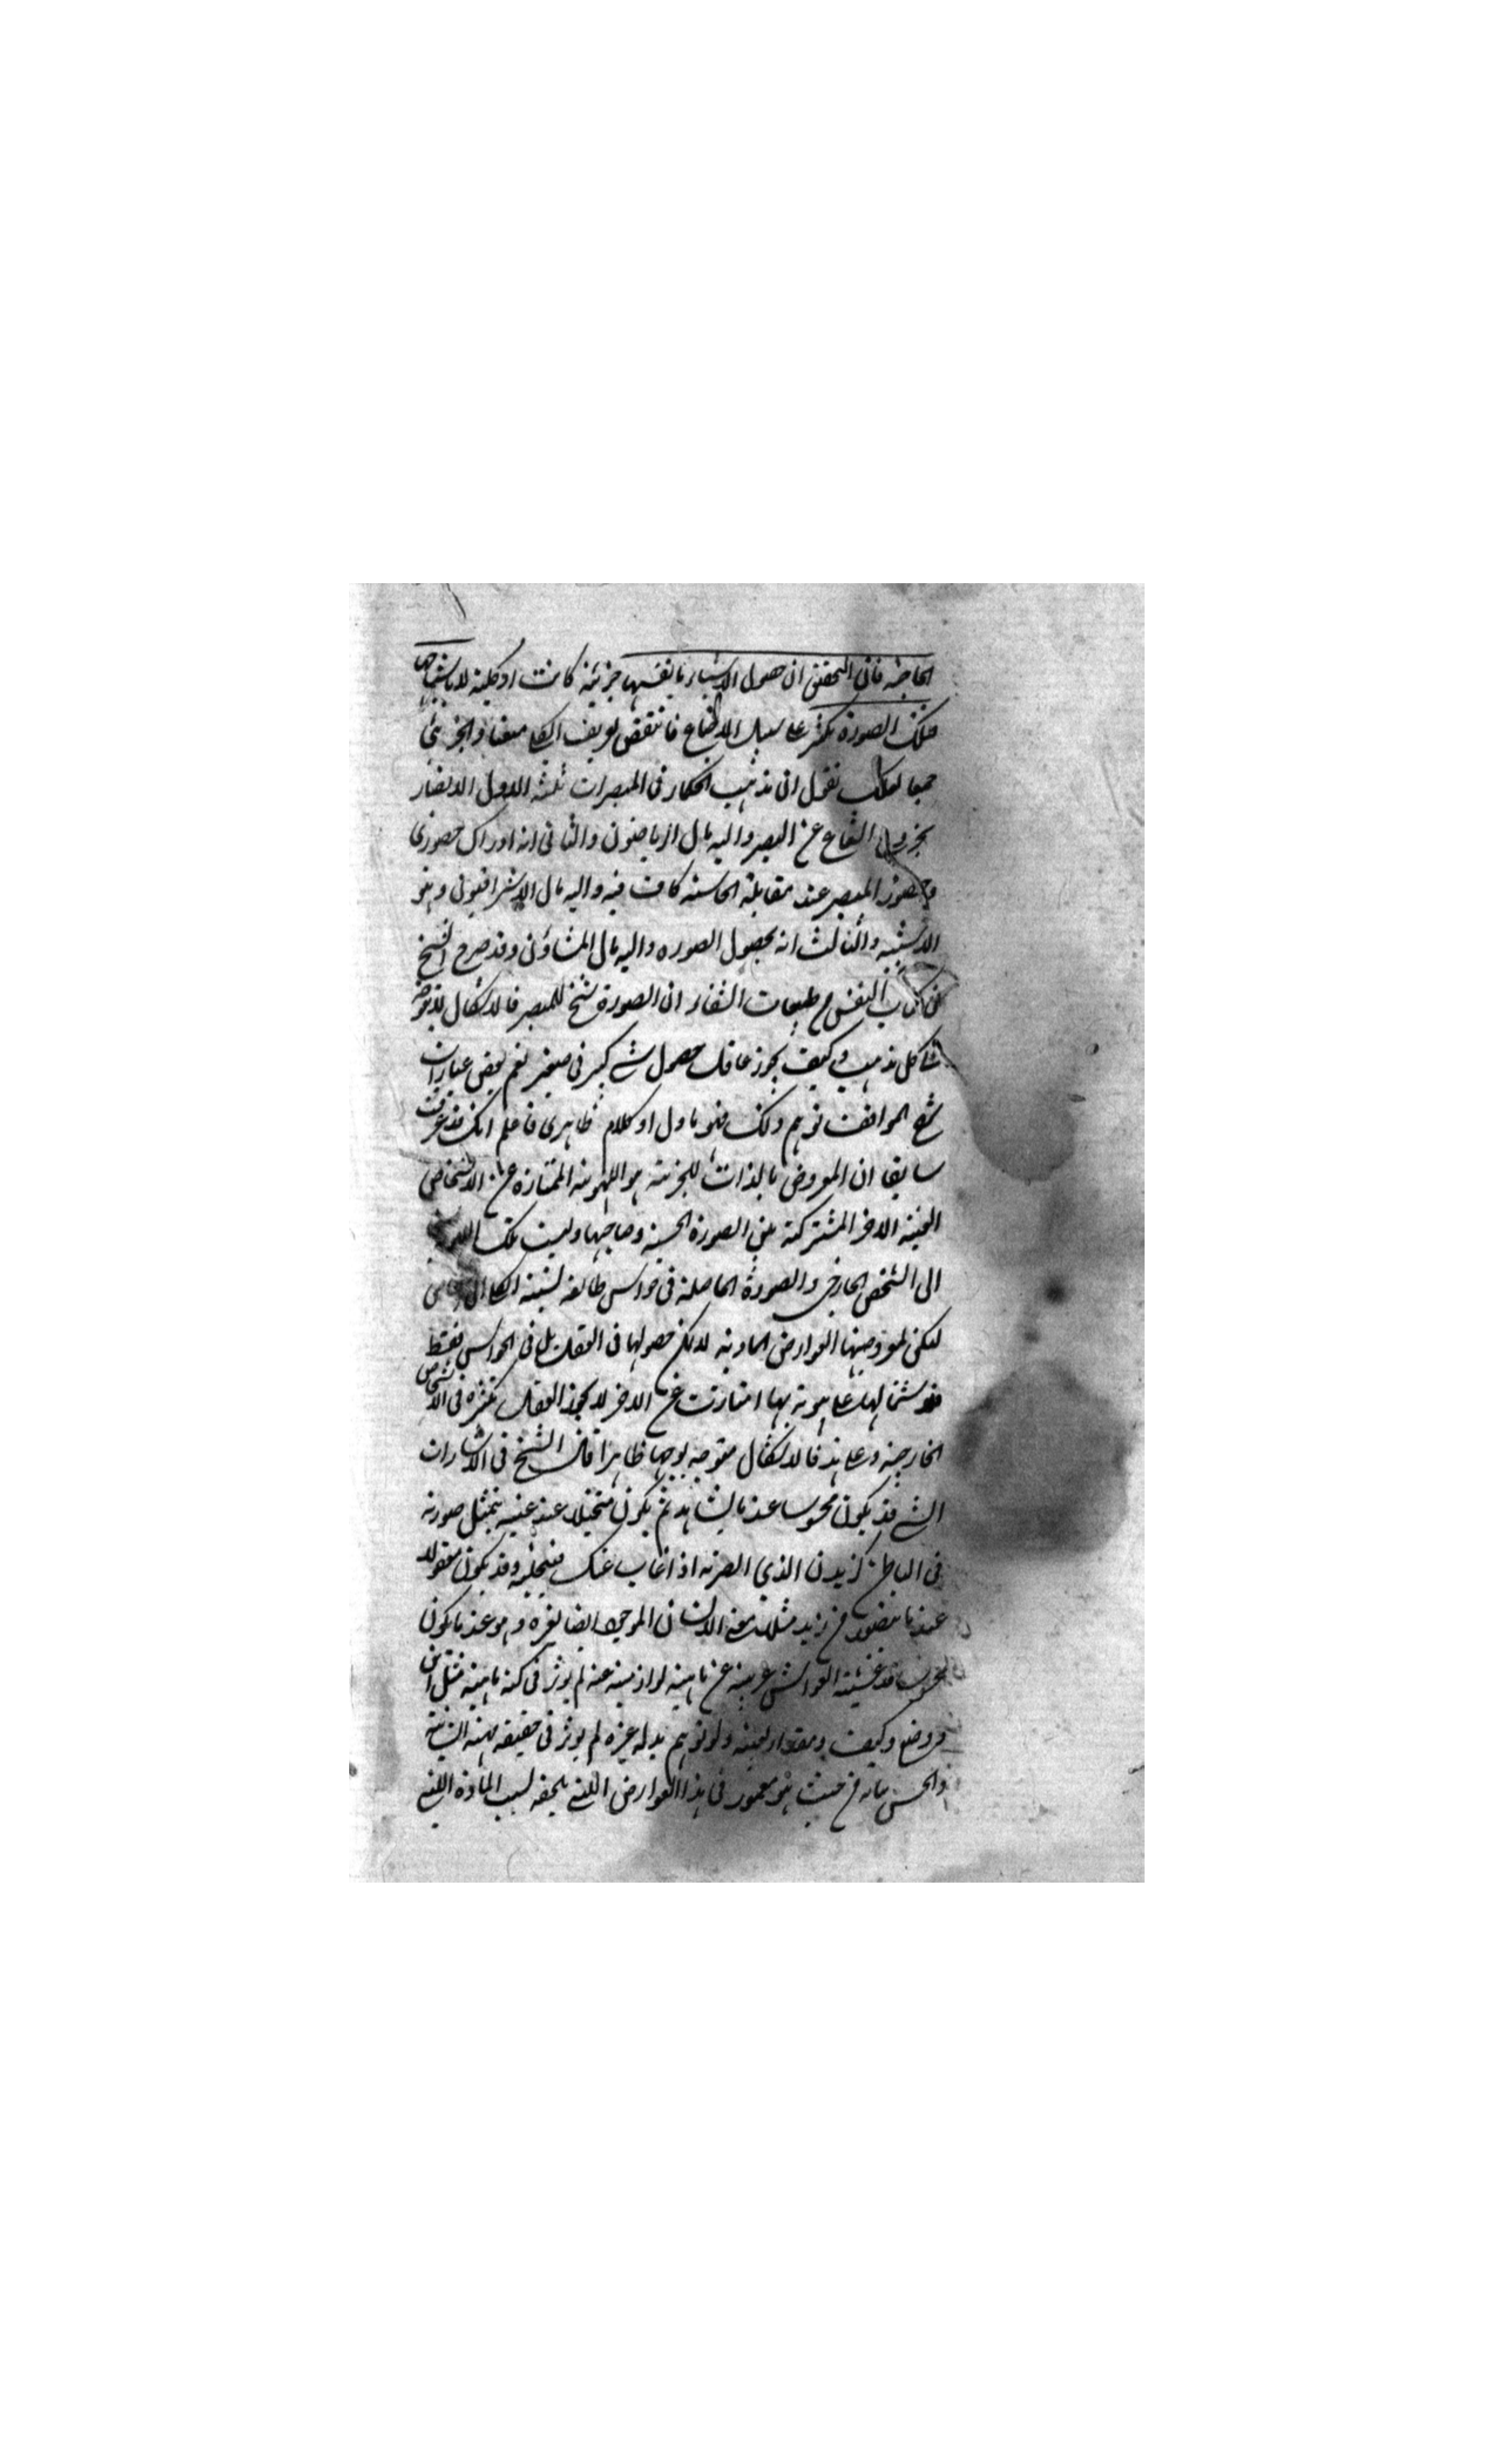 الخارجية فان التحقيق ان حصول الاشياء بانفسها جزئية كانت او كلية لا باشباحها
فتلك الصورة تكثر على سبيل الاجتماع فانتقض تعريف الكلي منعا والجزئي
جمعا لعلك تقول ان مذهب الحكماء في المبصرات ثلثة الاول الابصار
بخروج الشعاع عن البصر واليه مال الرياضيون والثاني انه ادراك حضوري
وحضور المبصر عند مقابلة الحاسة كاف فيه واليه مال الاشراقيون وهو
الاشبه والثالث انه بحصول الصورة واليه مال المشاؤن وقد صرح الشيخ
في كتاب النفس من طبيعات الشفاء ان الصورة شبح للمبصر فالاشكال لا يتوجه
على كل مذهب وكيف يجوز عاقل حصول شيء كبير في صغير نعم بعض عبارات
شرح المواقف توهم ذلك فهو ماول او كلام ظاهري فاعلم انك قد عرفت
سابقا ان المعروض بالذات للجزئية هو الهوية الممتازة عن الاشخاص
العينية الاخر المشتركة بين الصورة الحسية وصاحبها وليست تلك
الى الشخص الخارجي والصورة الحاصلة في حواس طائفة نسبة الكلي الى
لكن لمعروضيتها العوارض المادية لا يمكن حصولها في العقل بل في الحواس فقط
فلاشتمالها على هوية بها امتازت عن الاخر لا يجوز العقل تكثره في الاشخاص
الخارجية وعلى هذا فالاشكال متوجه بوجهها ظاهرا قال الشيخ في الاشارات
الشيء قد يكون محسوسا عند ما يشاهد ثم يكون متخيلا عند غيبه بتمثل صورته
في الباطن كزيدن الذي ابصرته اذا غاب عنك فتخيلته وقد يكون معقولا
عند ما يتصور من زيد مثلا معنى الانسان الموجود ايضا لغيره وهو عند ما يكون
محسوسا قد غشيته الغواشي غريبة عن ماهية لو ازيلت عنه لم يوثر في كنه ماهيته مثل اين
ووضع وكيف ومقدار بعينه ولو توهم بدله غيره لم يوثر في حقيقة ماهية انسانية
والحس يناله من حيث هو مغمور في هذا العوارض اللتي يلحقه لسبب المادة اللتي